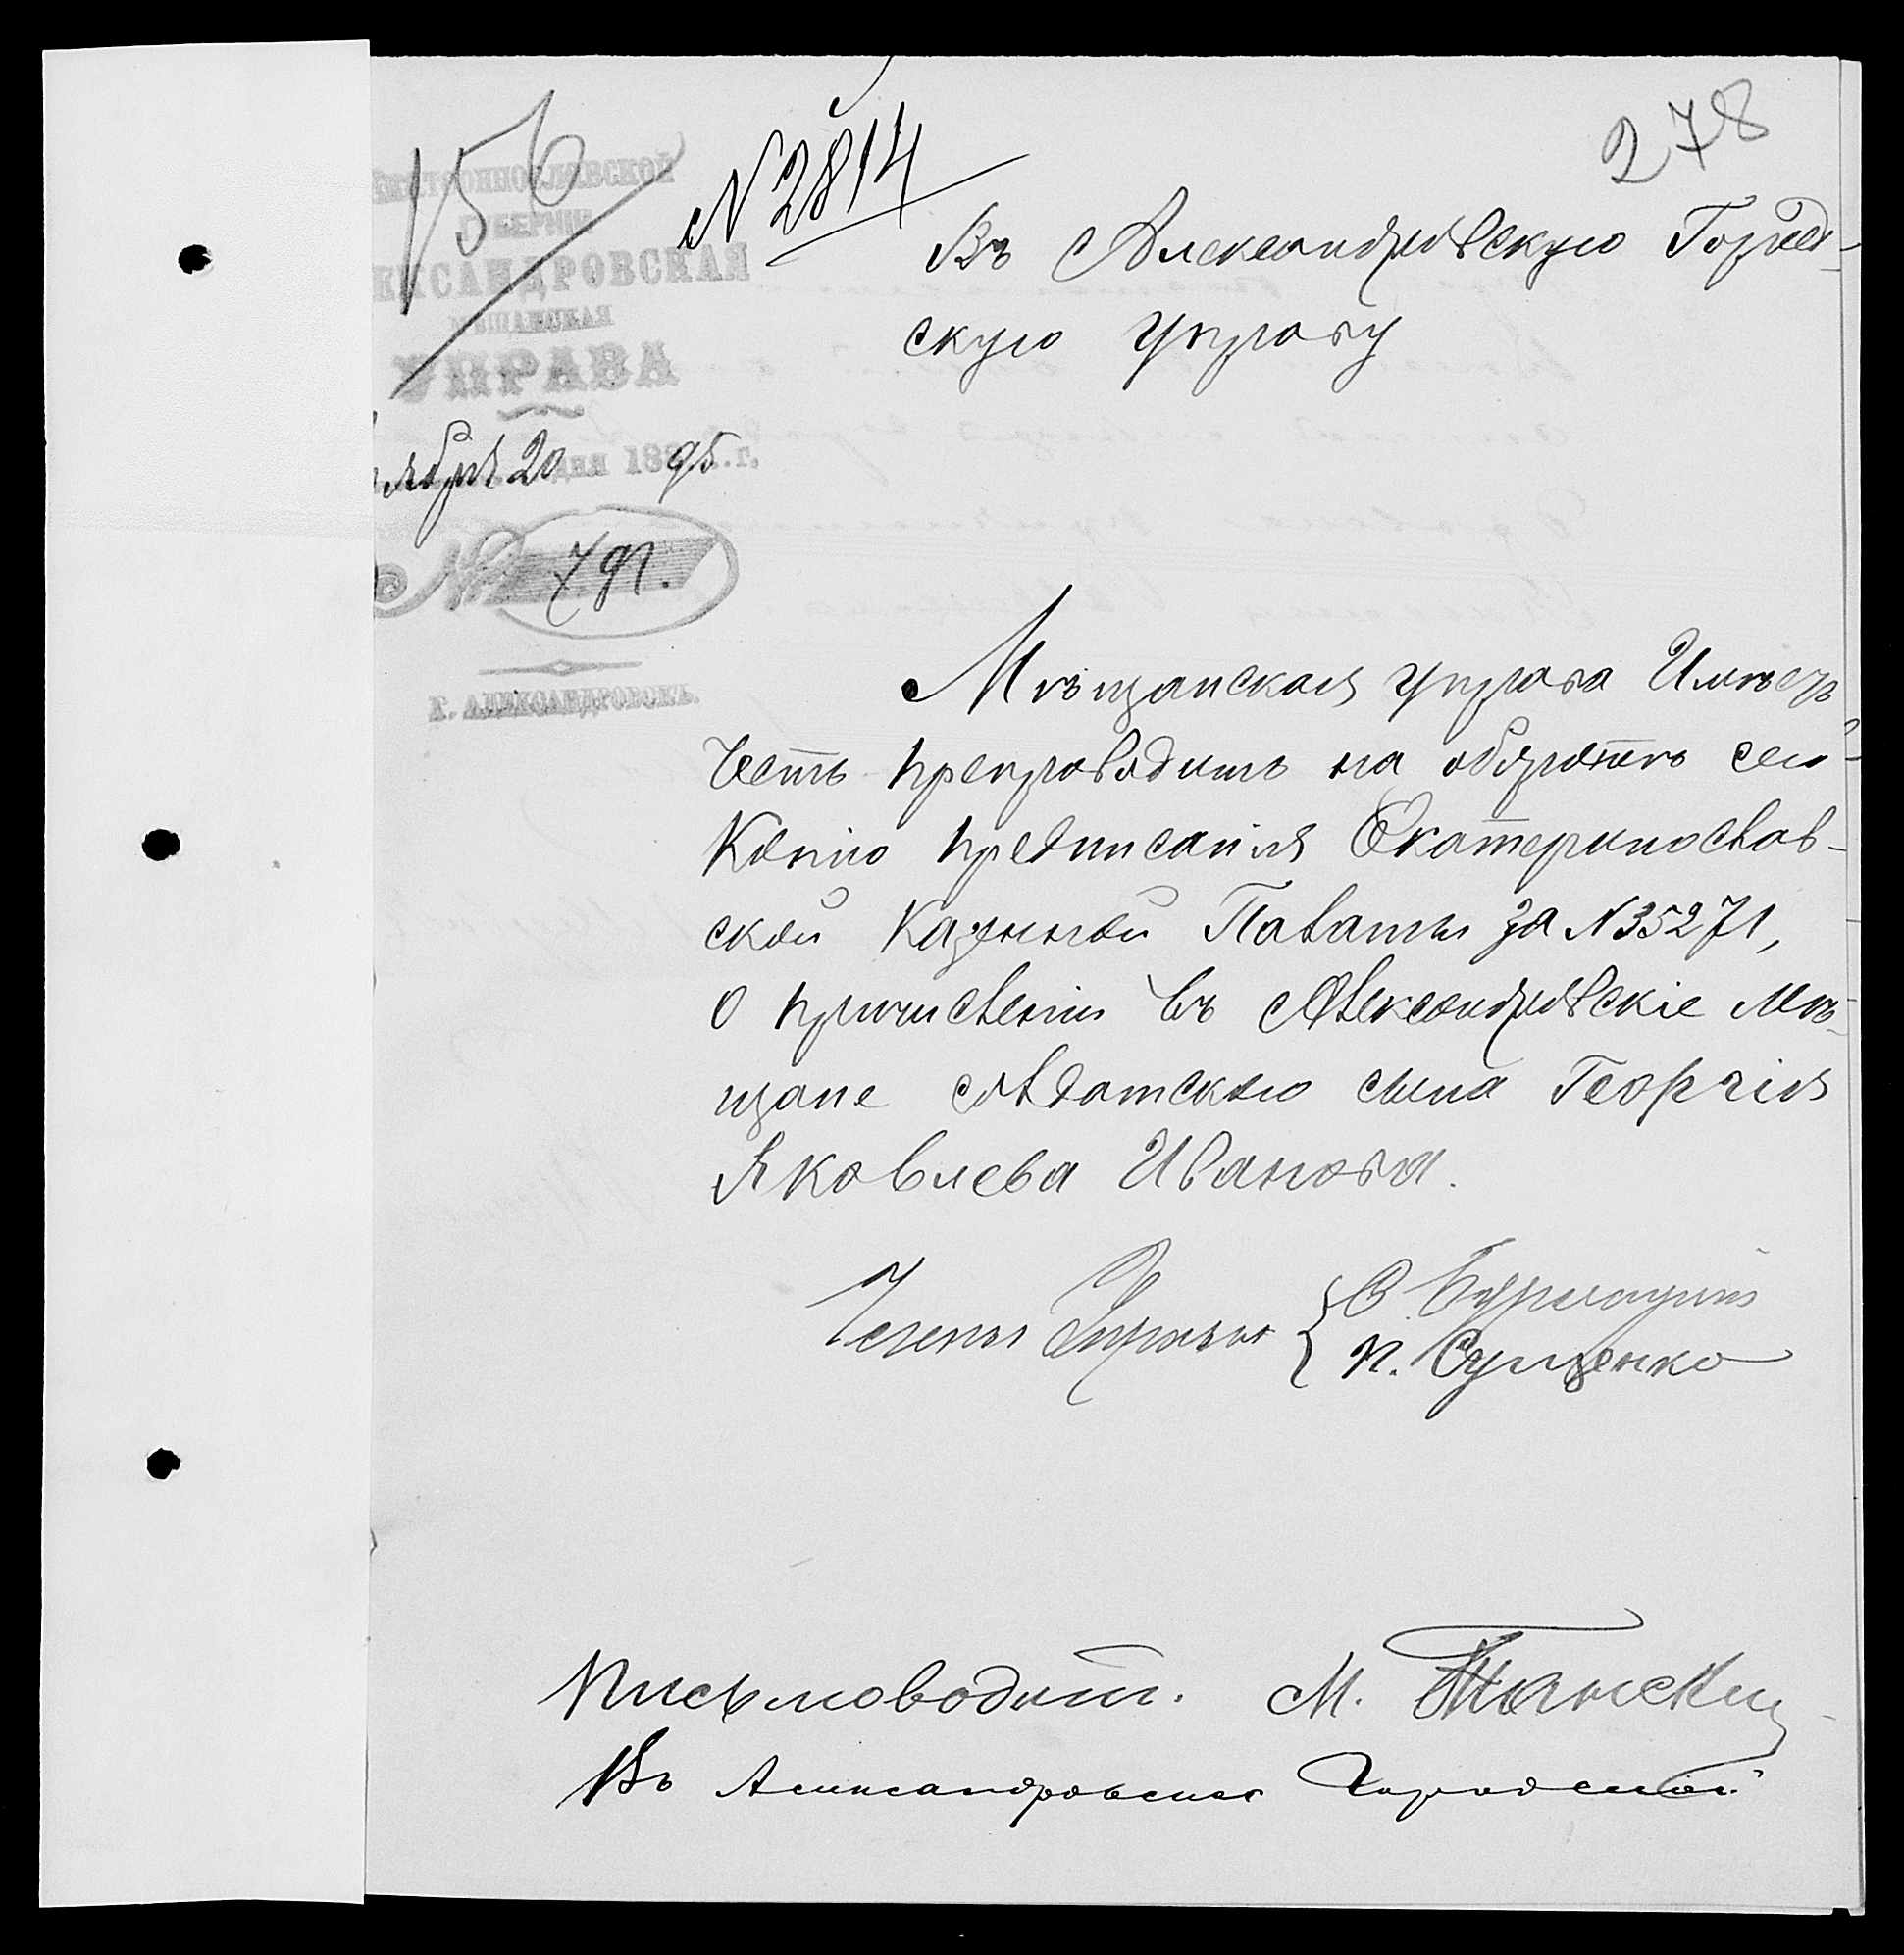 278
156
№ 2814
ЕКАТЕРИНОСЛАВСКОЙ
ГУБЕРНІИ
АЛЕКСАНДРОВСКАЯ
МѢЩАНСКАЯ
УПРАВА
ября 20 дня 1895 г.
№ 791.
Г. АЛЕКСАНДРОВСКЪ.
Въ Александровскую Город-
скую Управу
Мѣщанская Управа Имѣетъ
Честь препроводить на обсужден
предписанія Екатеринослав-
ской Казенной Палаты за № 35271,
о причисленіи въ Александровскіе Мѣ-
щане солдатскаго сына Георгія
Яковлева Иванова.
Члены Управы
П. Сущенко
Письмоводит. М.
Въ Александровской Городской